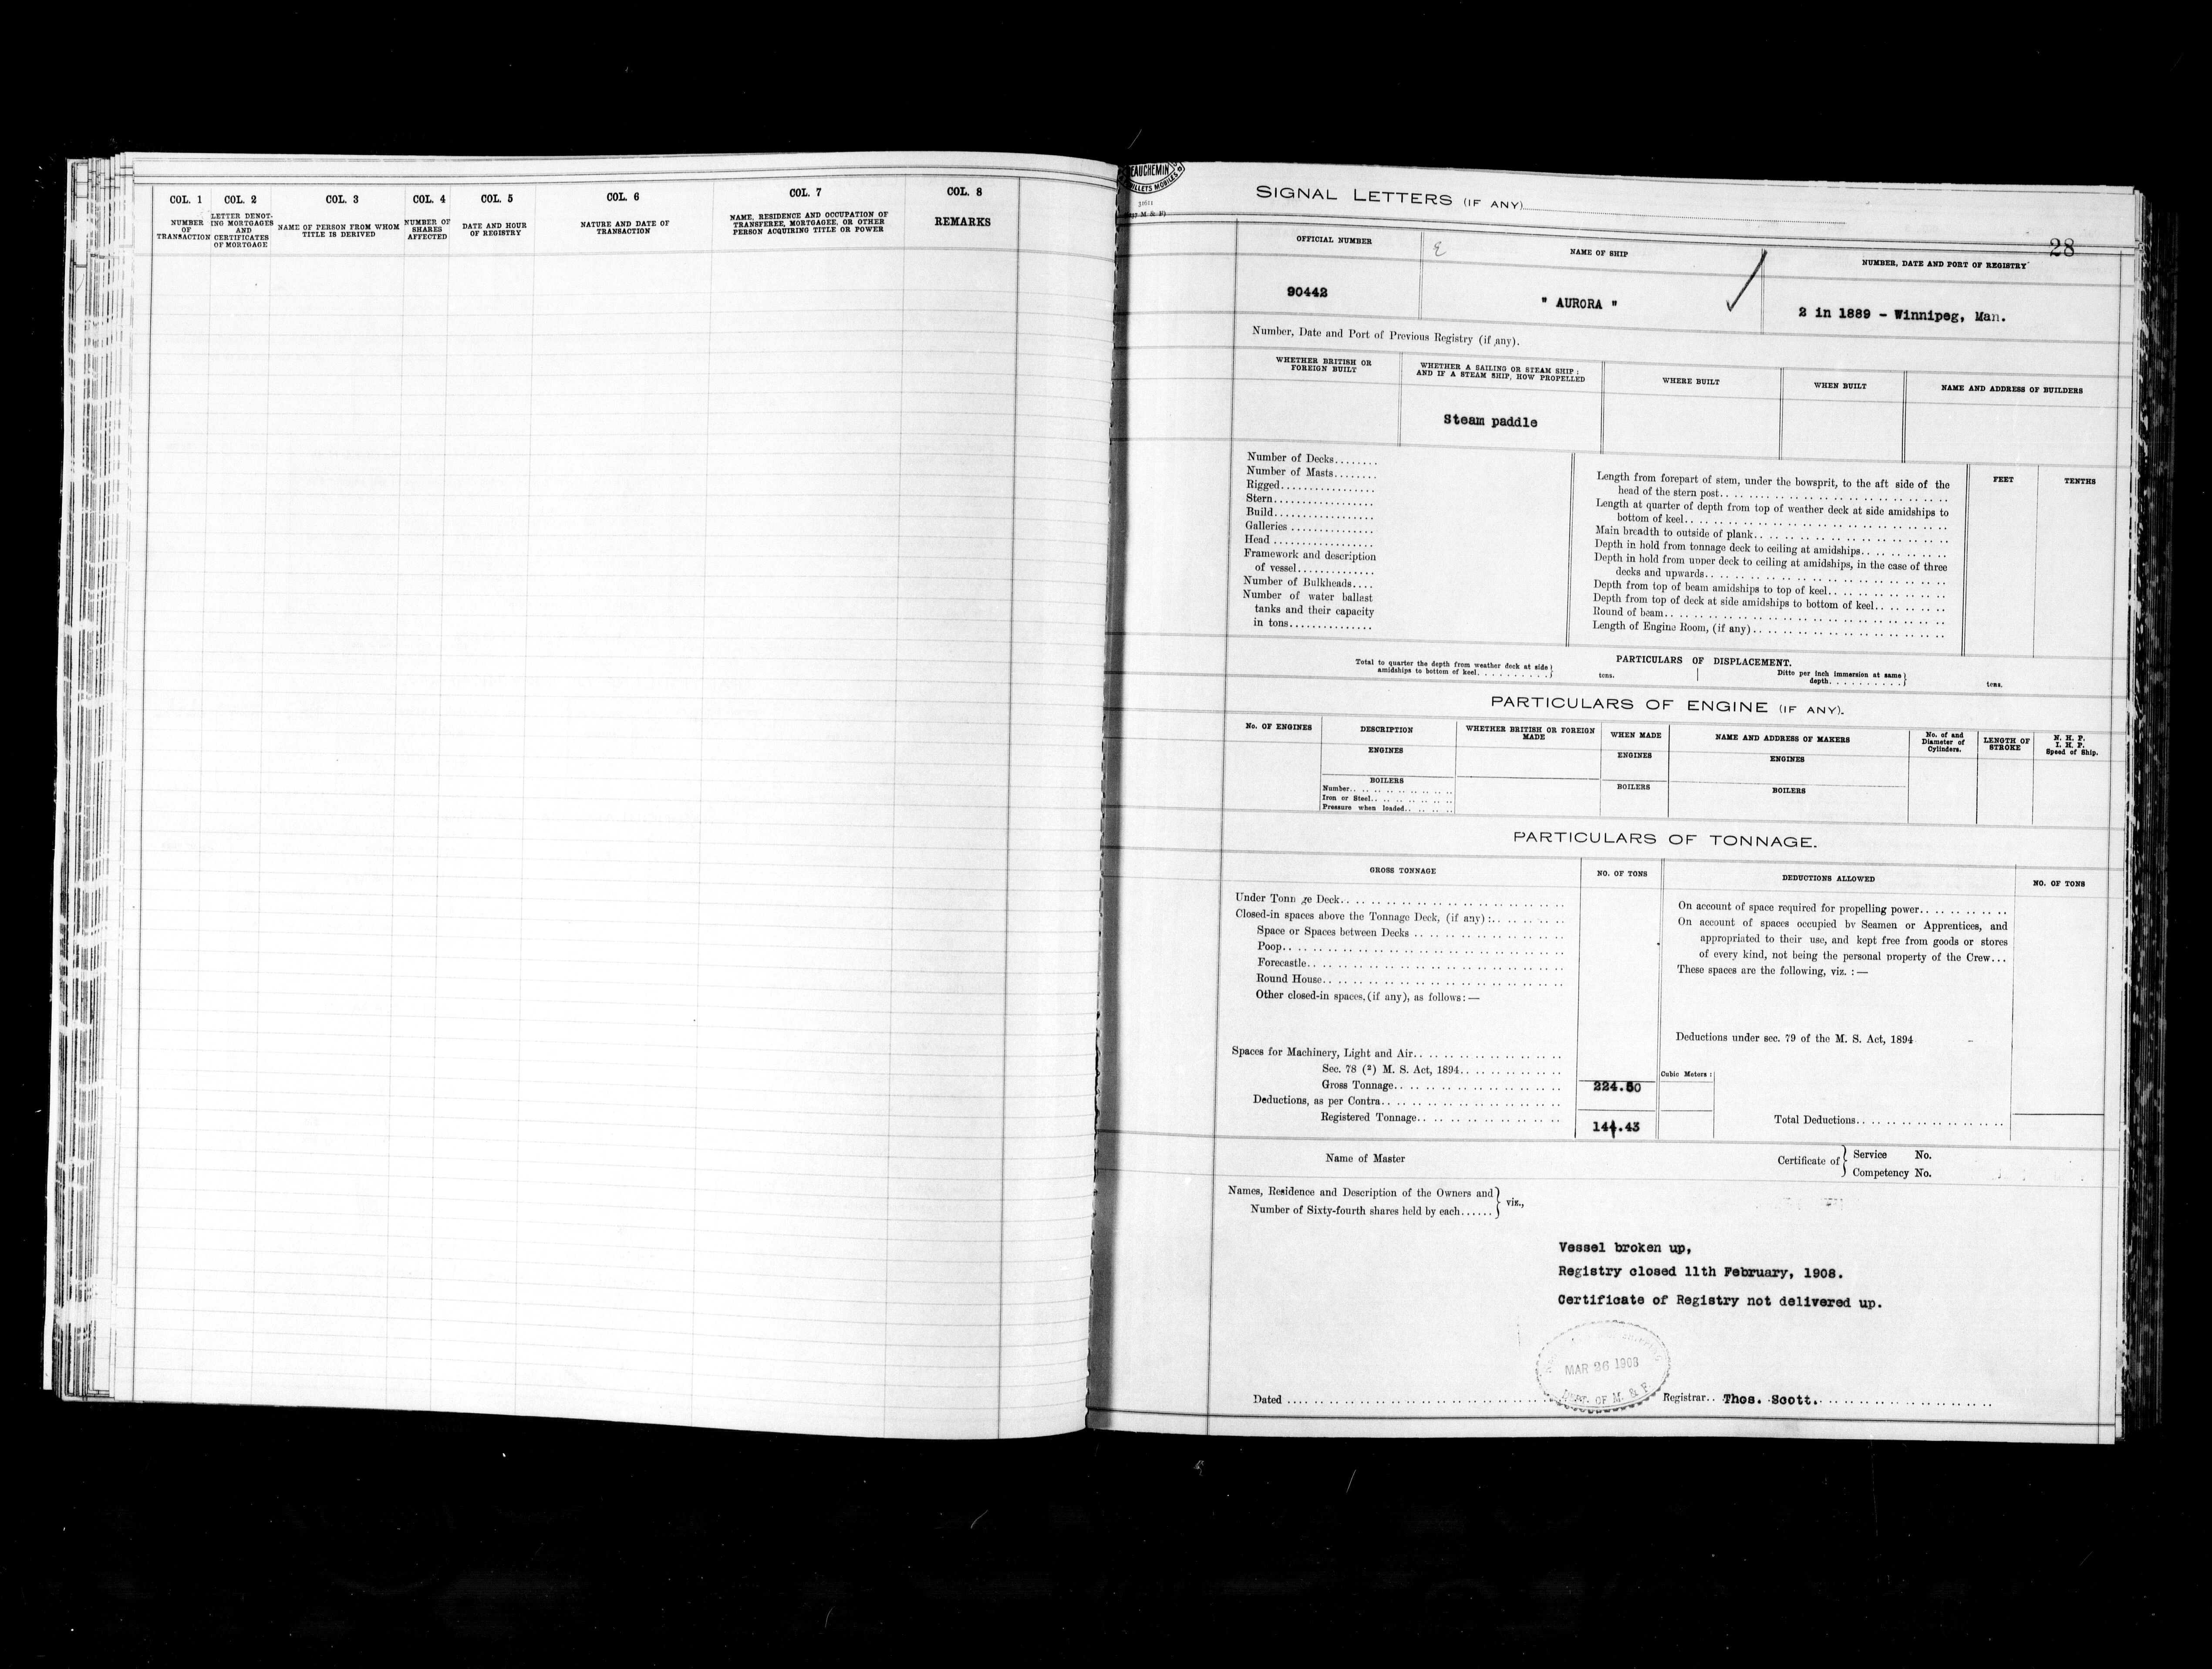 COL. 1 COL. 2 COL. 3 COL. 4 COL. 5 COL. 6 COL. 7 COL. 8
NUMBER OF TRANSACTION
LETTER DENOT-
ING MORTGAGES
AND
CERTIFICATES
OF MORTGAGE
NAME OF PERSON FROM WHOM
TITLE IS DERIVED
NUMBER OF
SHARES
AFFECTED
DATE AND HOUR
OF REGISTRY
NATURE AND DATE OF
TRANSACTION
NAME, RESIDENCE AND OCCUPATION OF
TRANSFEREE, MORTGAGEE, OR OTHER
PERSON ACQUIRING TITLE OR POWER
REMARKS
SIGNAL LETTERS (IF ANY)
28
OFFICIAL NUMBER
NAME OF SHIP
NUMBER, DATE AND PORT OF REGISTRY
90442
" AURORA "
2 in 1889 - Winnipeg, Man.
Number, Date and Port of Previous Registry (if any).
WHETHER BRITISH OR
FOREIGN BUILT
WHETHER A SAILING OR STEAM SHIP ;
AND IF A STEAM SHIP, HOW PROPELLED
WHERE BUILT
WHEN BUILT
NAME AND ADDRESS OF BUILDERS
Steam paddle
Number of Decks........
Number of Masts........
Rigged.................
Stern..................
Build..................
Galleries ...............
Head ..................
Framework and description
of vessel..............
Number of Bulkheads....
Number of water ballast
tanks and their capacity
in tons...............
FEET TENTHS
Length from forepart of stem, under the bowsprit, to the aft side of the
head of the stern post..
Length at quarter of depth from top of weather deck at side amidships to
bottom of keel..
Main breadth to outside of plank..
Depth in hold from tonnage deck to ceiling at amidships..
Depth in hold from upper deck to ceiling at amidships, in the case of three
decks and upwards..
Depth from top of beam amidships to top of keel..
Depth from top of deck at side amidships to bottom of keel..
Round of beam..
Length of Engine Room, (if any)..
PARTICULARS OF DISPLACEMENT.
Total to quarter the depth from weather deck at side
amidships to bottom of keel..........} tons.
Ditto per inch immersion at same
depth..........} tons.
PARTICULARS OF ENGINE (IF ANY).
No. OF ENGINES
DESCRIPTION
WHETHER BRITISH OR FOREIGN
MADE
WHEN MADE
NAME AND ADDRESS OF MAKERS
No. of and
Diameter of
Cylinders.
LENGTH OF
STROKE
N. H. P.
I. H. P.
Speed of Ship.
ENGINES ENGINES ENGINES
BOILERS BOILERS BOILERS
Number..
Iron or Steel..
Pressure when loaded..
PARTICULARS OF TONNAGE.
GROSS TONNAGE NO. OF TONS DEDUCTIONS ALLOWED NO. OF TONS
Under Tonn ge Deck..
Closed-in spaces above the Tonnage Deck, (if any) :..
Space or Spaces between Decks ..
Poop..
Forecastle..
Round House..
Other closed-in spaces, (if any), as follows: —
Spaces for Machinery, Light and Air..
Sec. 78 (2) M. S. Act, 1894..
Gross Tonnage.. 224.50
Deductions, as per Contra..
Registered Tonnage.. 144.43
Cubic Meters :
On account of space required for propelling power..
On account of spaces occupied by Seamen or Apprentices, and
appropriated to their use, and kept free from goods or stores
of every kind, not being the personal property of the Crew...
These spaces are the following, viz. : —
Deductions under sec. 79 of the M. S. Act, 1894
Total Deductions..
Name of Master
Certificate of { Service No.
Competency No.
Names, Residence and Description of the Owners and
Number of Sixty-fourth shares held by each......} viz.,
Vessel broken up,
Registry closed 11th February, 1908.
Certificate of Registry not delivered up.
MAR 26 1908
DEPT. OF M. & F.
Dated ..
Registrar.. Thos. Scott.